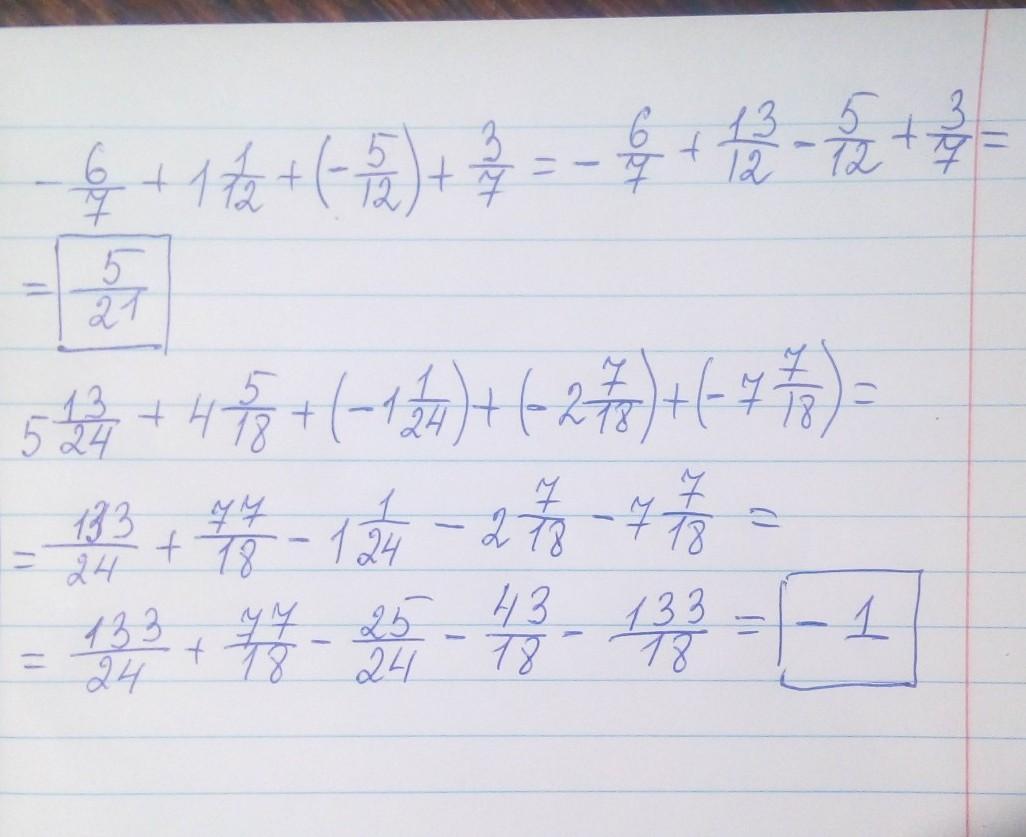 - 6/7 + 1 1/12 + (- 5/12) + 3/7 = - 6/7 + 13/12 - 5/12 + 3/7 =
= 5/21
5 13/24 + 4 5/18 + (-1 1/24) + (-2 7/18) + (-7 7/18) =
= 133/24 + 77/18 - 1 1/24 - 2 7/18 - 7 7/18 =
= 133/24 + 77/18 - 25/24 - 43/18 - 133/18 = - 1